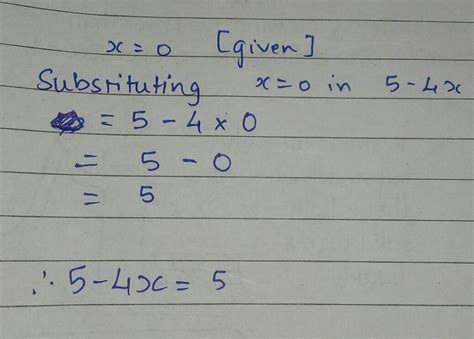 x = 0 [given]
Substituting x = 0 in 5 - 4x
= 5 - 4 × 0
= 5 - 0
= 5
∴ 5 - 4x = 5